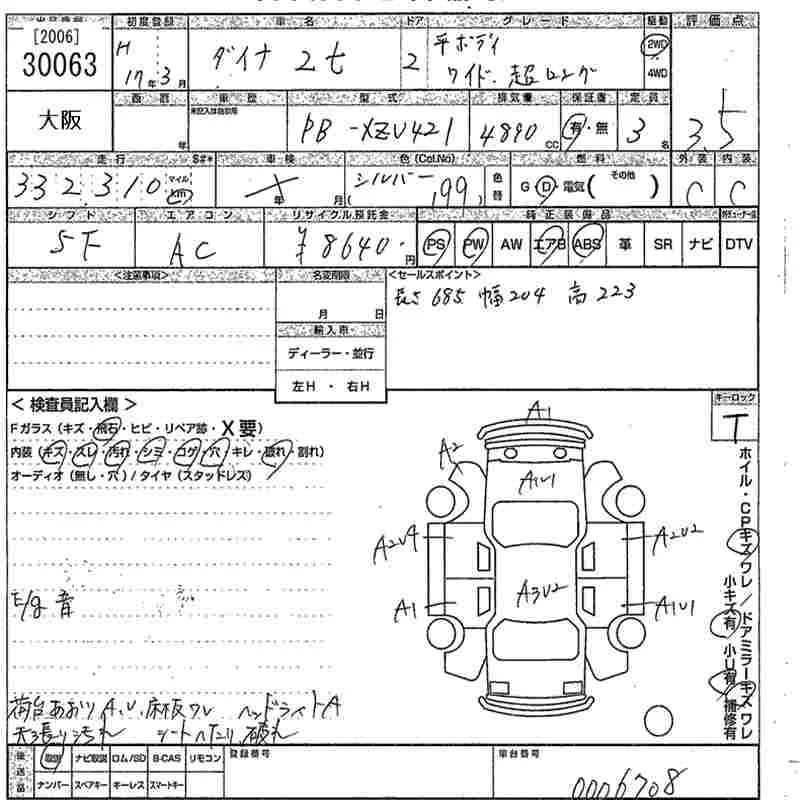 出品番号 初度登録 車名 ドア グレード 駆動 評価点
[2006] 30063
H 17年 3月
ダイナ 2t
2
平ボディ
ワイド 超ロング
2WD
4WD
3.5
大阪
西暦 車歴 型式 排気量 保証書 定員
未記入は自家用
年
PB-XZU421
4890cc
有・無
3名
走行 車検 色(Col.No) 燃料 外装 内装
332,310 マイル km
年 月
シルバー (199)
色替
G・D・電気( その他 )
C C
シフト エアコン リサイクル預託金 純正装備品
5F
AC
¥8640.円
PS PW AW エアB ABS 革 SR ナビ DTV
<注意事項>
名変期限
月 日
輸入車
ディーラー・並行
左H・右H
<セールスポイント>
長さ685 幅204 高223
<検査員記入欄>
Fガラス(キズ・飛石・ヒビ・リペア跡・X要)
内装(キズ・スレ・汚れ・シミ・コゲ・穴・キレ・破れ・割れ)
オーディオ(無し・穴)/タイヤ(スタッドレス)
E/g音
荷台あおりA,U,床板ワレ ヘッドライトA
天張り汚れ シートヘタリ,破れ
A1
A2
A1U1
A2U4
A2U2
A3U2
A1
A1U1
キーロック
T
ホイル・CPキズワレ/ドアミラーキズワレ
小キズ有 小U有 補修有
後送品
取説 ナビ取説 ロム/SD B-CAS リモコン
ナンバー スペアキー キーレス スマートキー
登録番号
車台番号
0006708